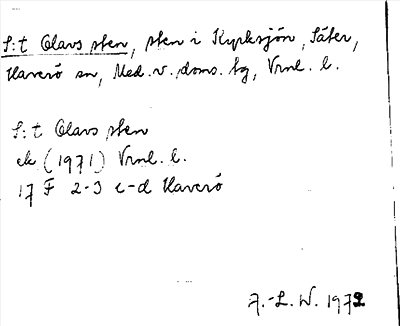 S:t Olavs sten, sten i Kyrksjön, Säter,
Haverö sn, Med. v. doms. tg, Vrnl. l.
S:t Olavs sten
ek (1971) Vrnl. l.
17 F 2-3 c-d Haverö
A.-L. W. 1972